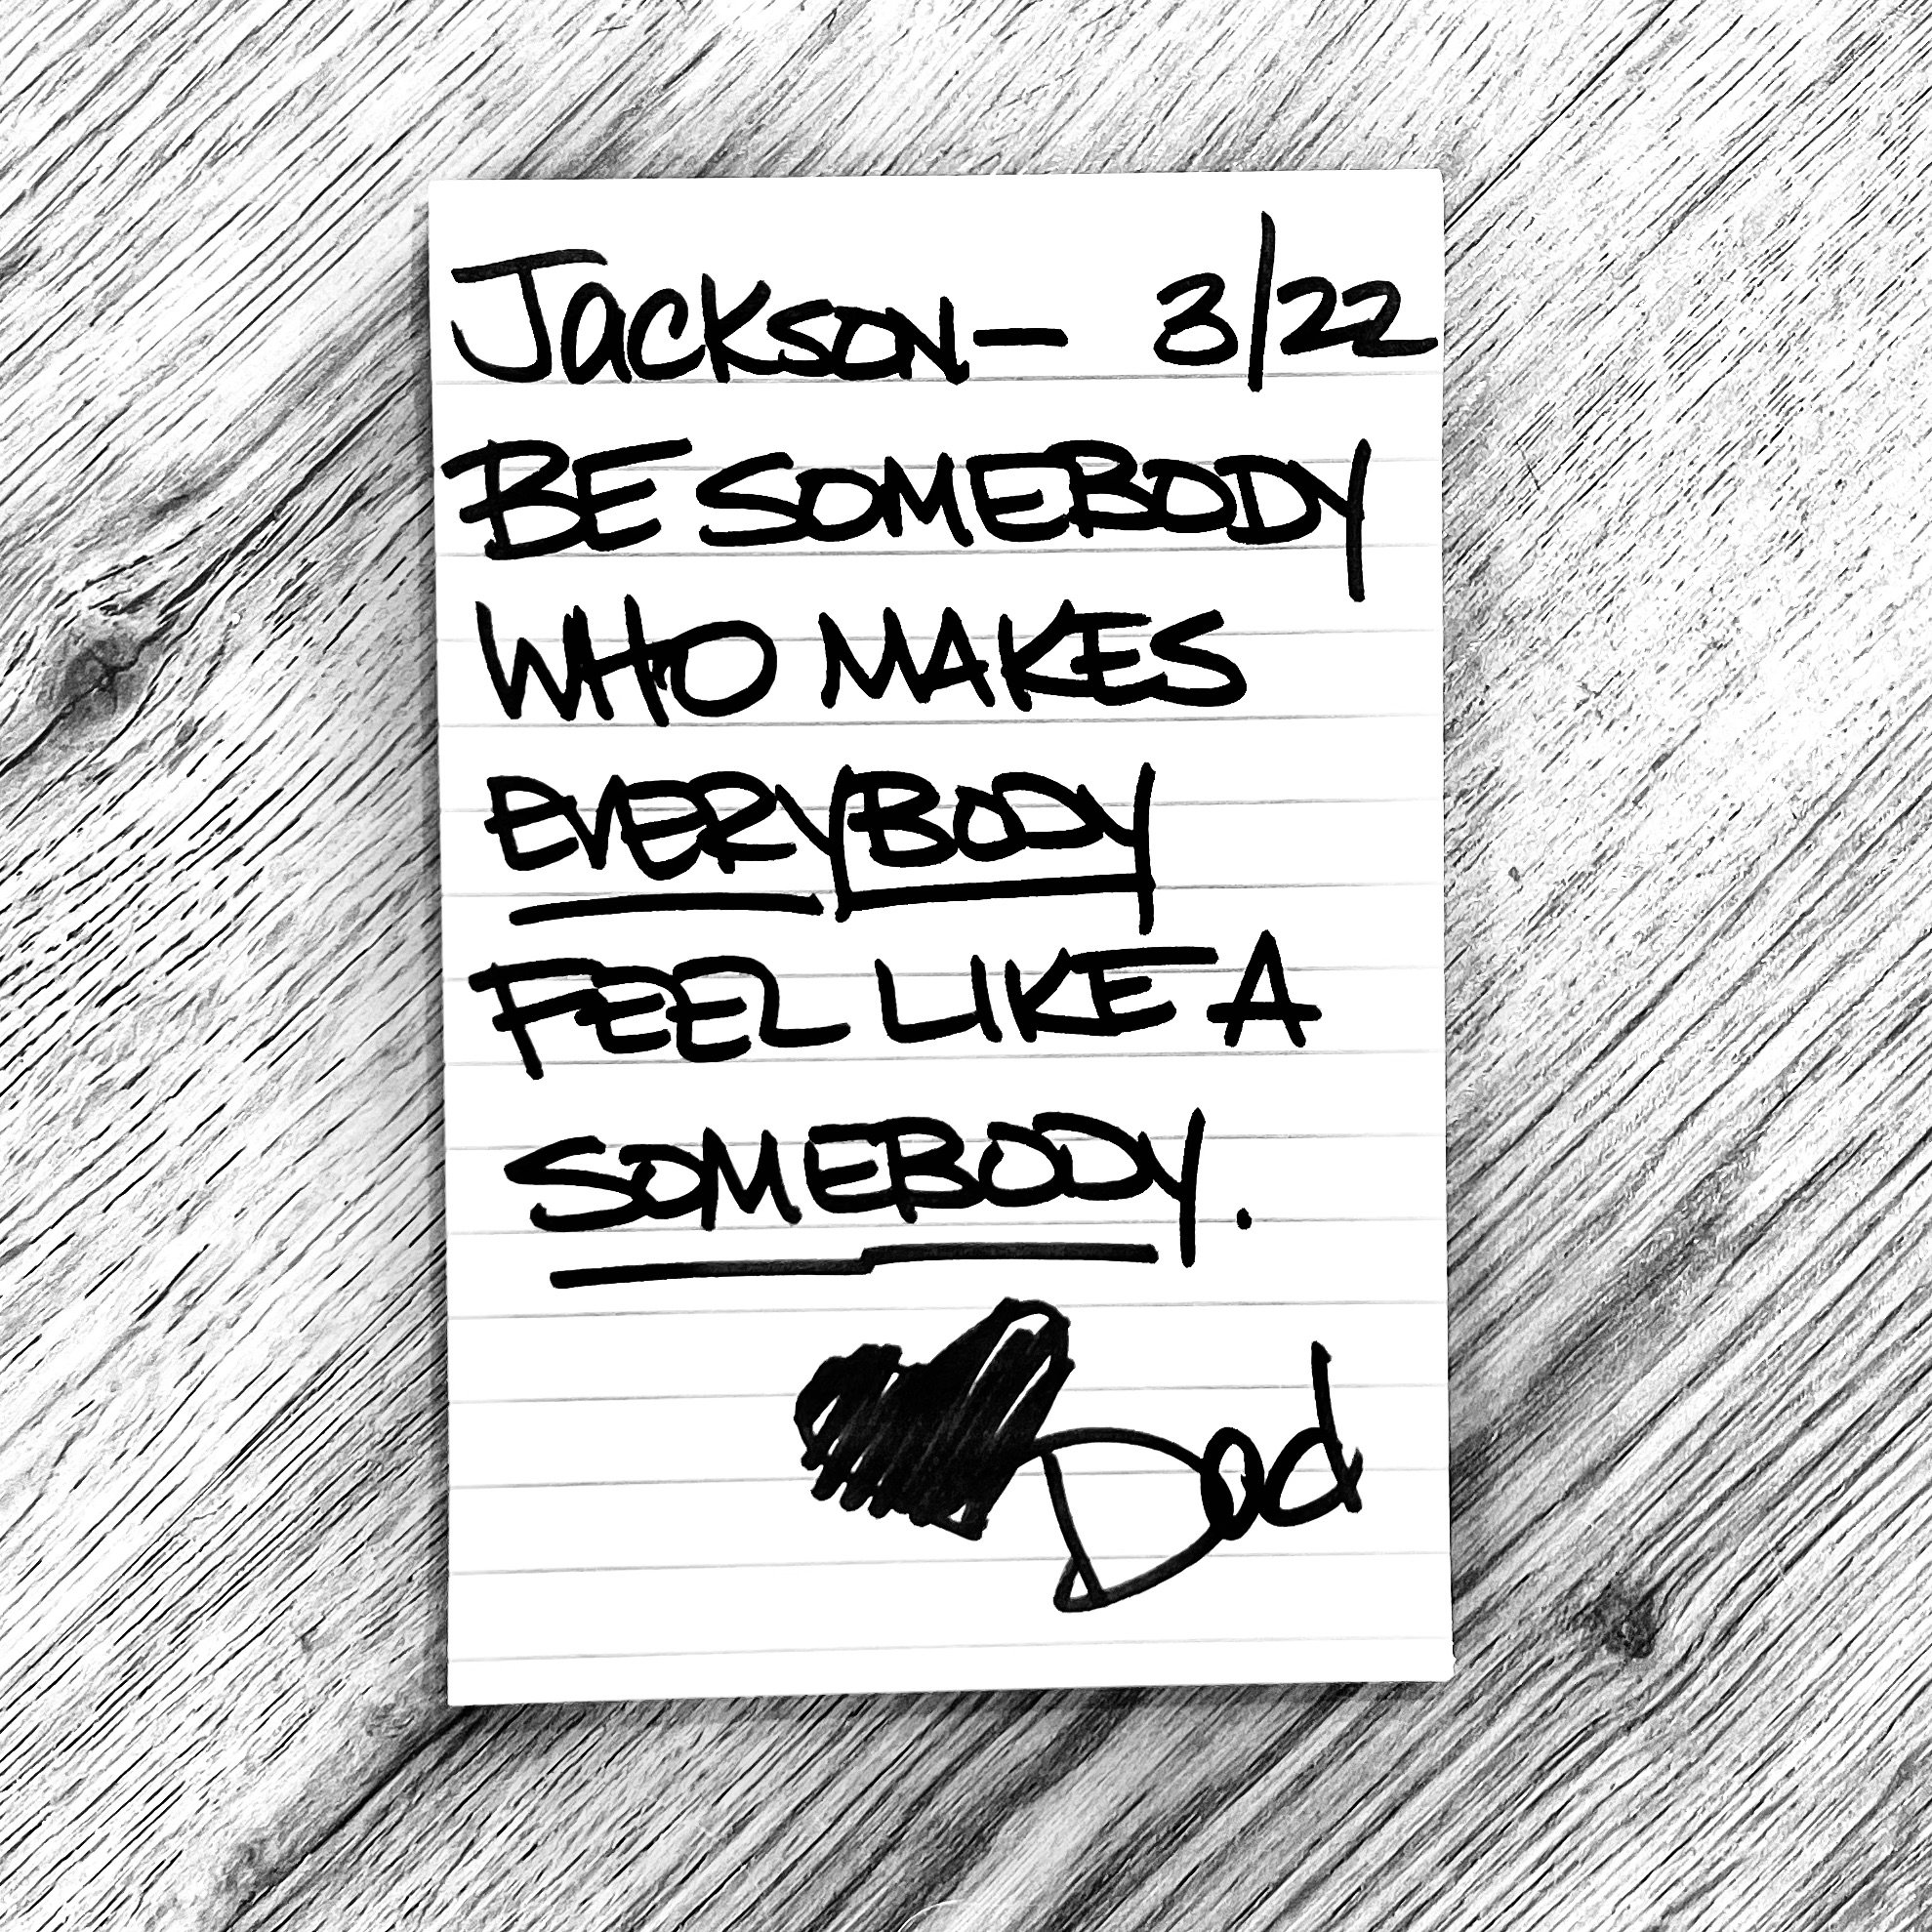 Jackson— 3/22
BE SOMEBODY
WHO MAKES
EVERYBODY
FEEL LIKE A
SOMEBODY.
Dad